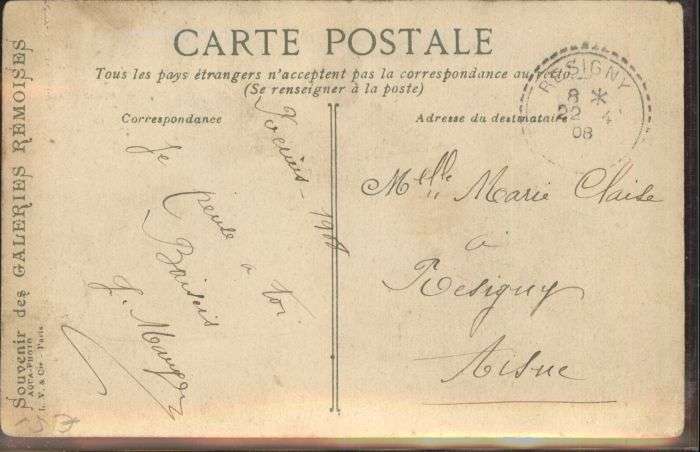 CARTE POSTALE
Tous les pays étrangers n'acceptent pas la correspondance au recto
(Se renseigner à la poste)
Correspondance
Adresse du destinataire
RESIGNY
8 *
22 4
08
1908
Je pense à toi
Baisers
Melle Marie Claise
à
Résigny
Aisne
Souvenir des GALERIES RÉMOISES
AQUA-PHOTO
L. V. & Cie - Paris